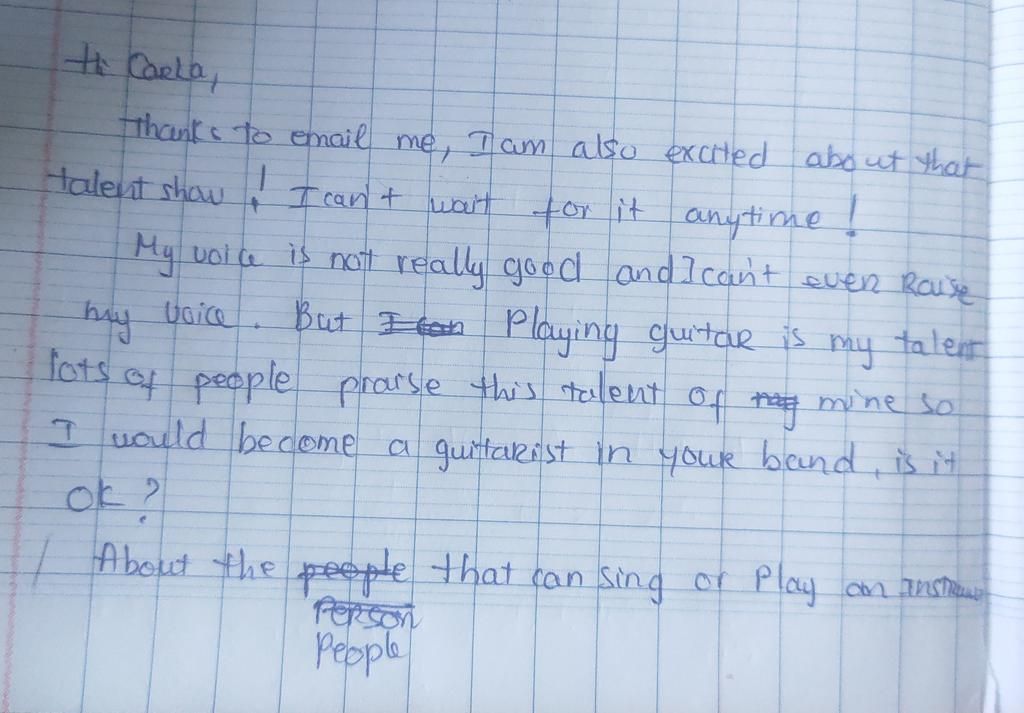 Hi Carla,
Thanks to email me, I am also excited about that
talent show! I can't wait for it anytime!
My voice is not really good and I can't even Raise
my voice. But I can Playing guitar is my talent
lots of people praise this talent of my mine so
I would become a guitarist in your band, is it
OK?
About the people that can sing or Play an
Person
People